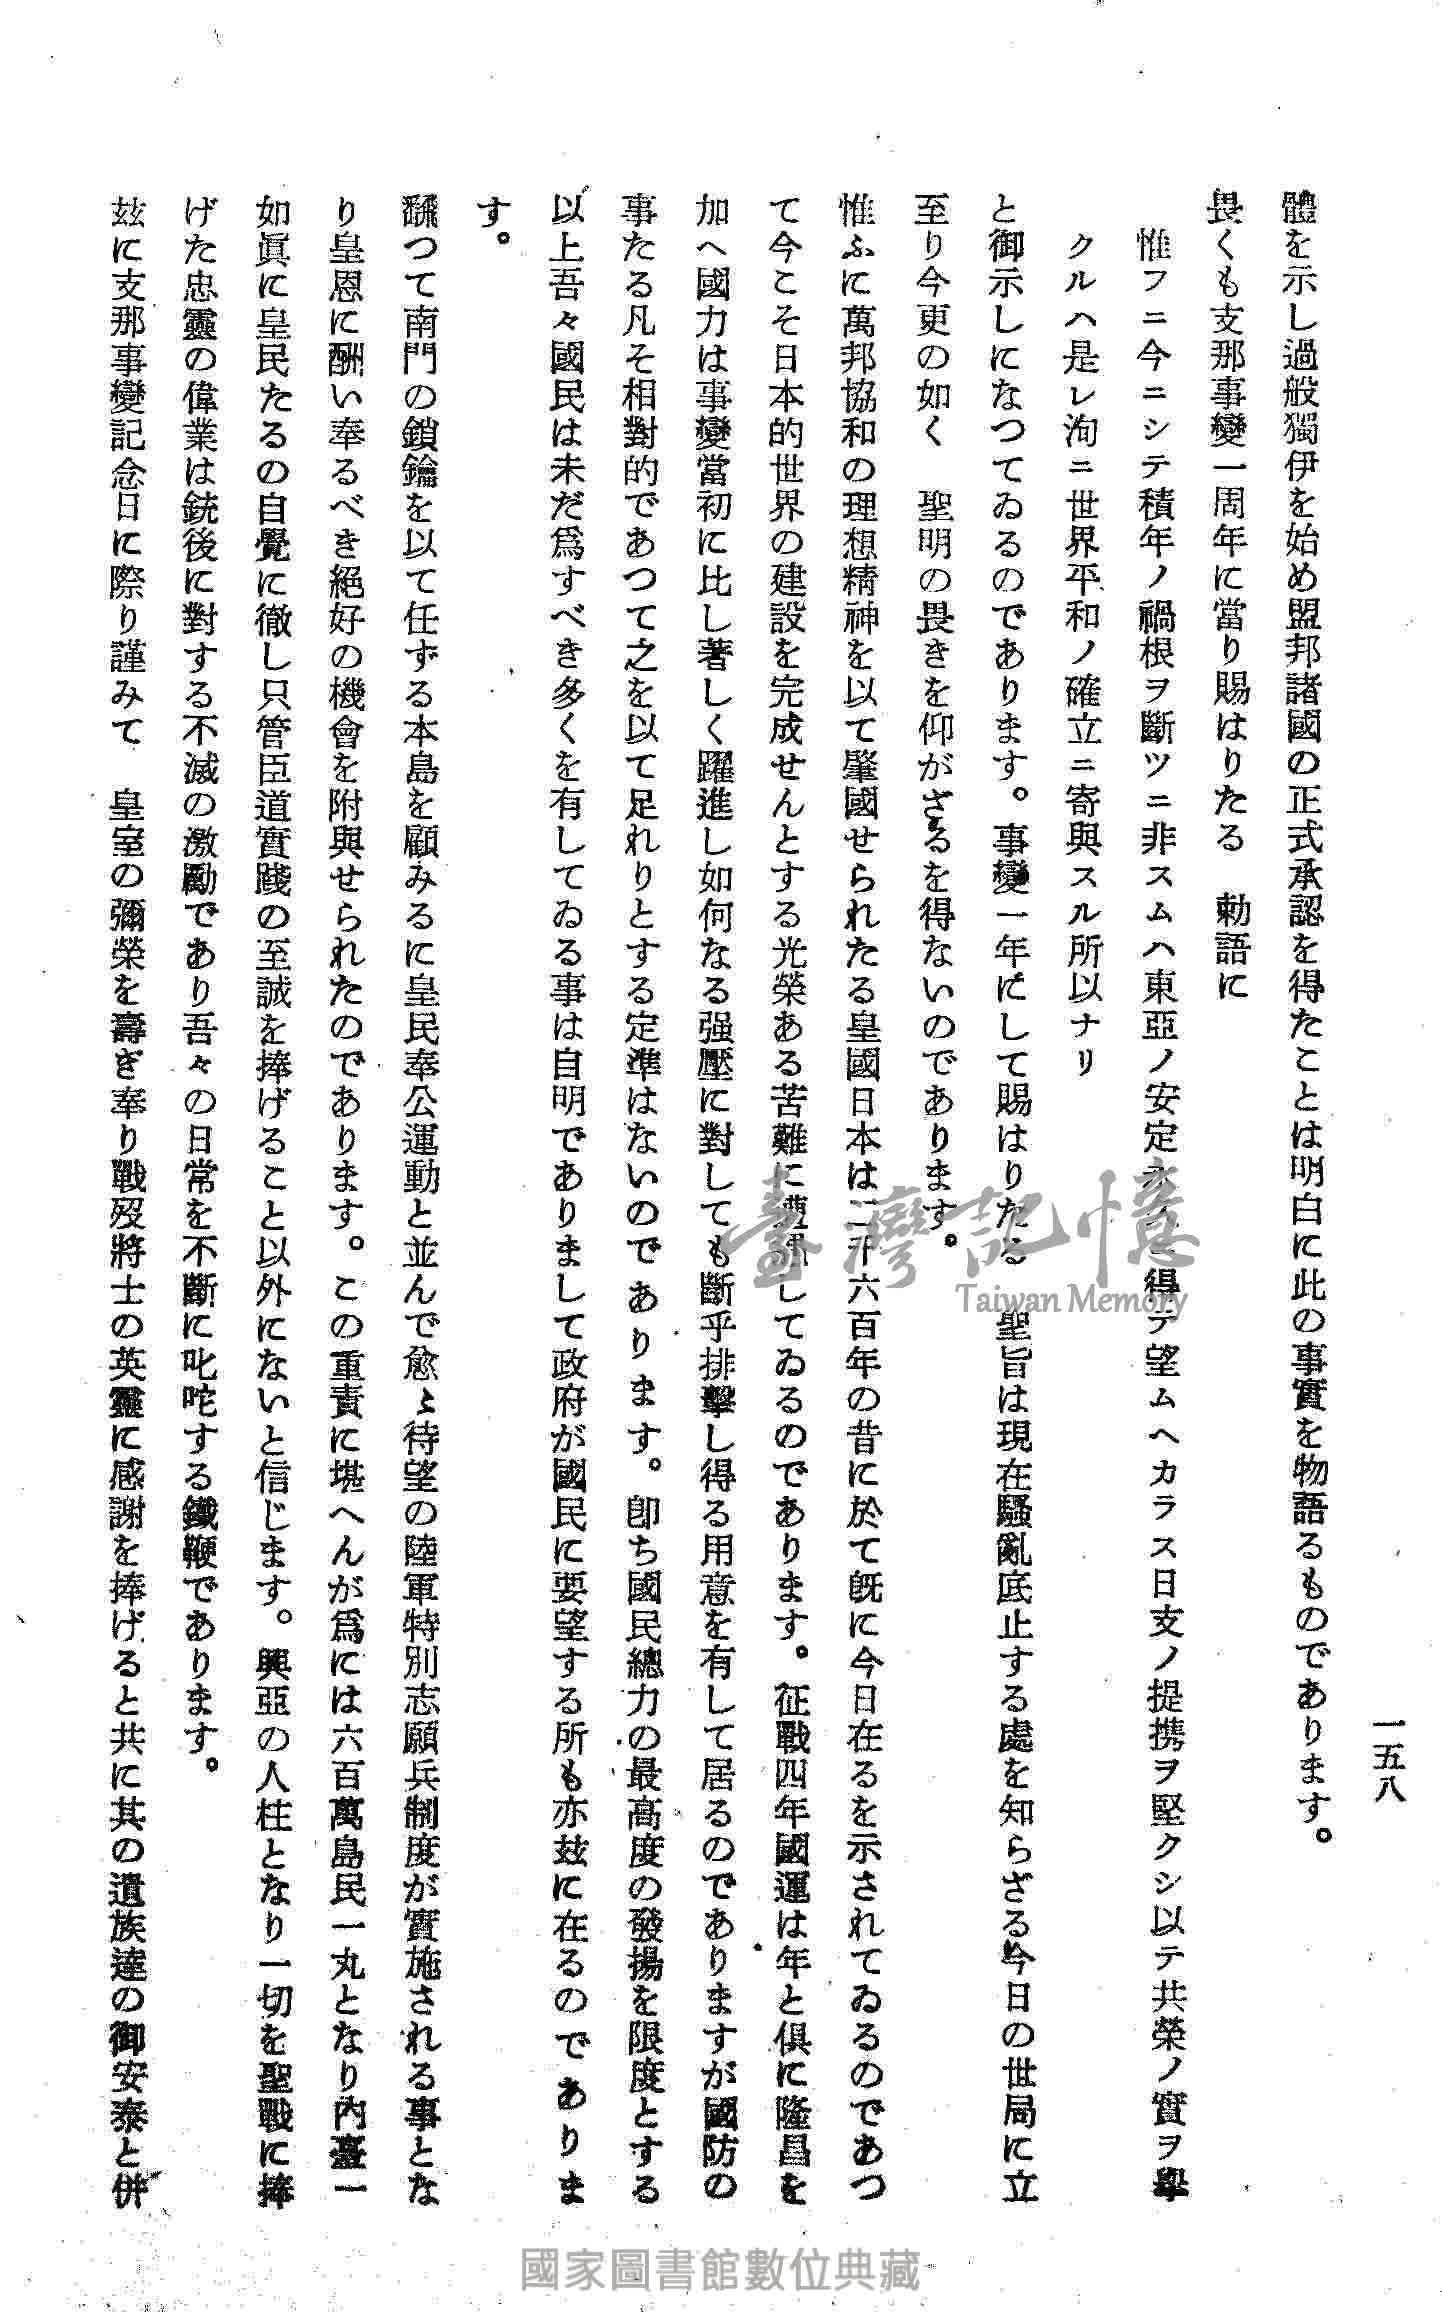 一五八
體を示し過般獨伊を始め盟邦諸國の正式承認を得たことは明白に此の事實を物語るものであります。
畏くも支那事變一周年に當り賜はりたる　勅語に
惟フニ今ニシテ積年ノ禍根ヲ斷ツニ非スムハ東亞ノ安定永久ニ得テ望ムヘカラス日支ノ提携ヲ堅クシ以テ共榮ノ實ヲ擧
クルハ是レ洵ニ世界平和ノ確立ニ寄與スル所以ナリ
と御示しになつてゐるのであります。事變一年にして賜はりたる　聖旨は現在騷亂底止する處を知らざる今日の世局に立
至り今更の如く　聖明の畏きを仰がざるを得ないのであります。
惟ふに萬邦協和の理想精神を以て肇國せられたる皇國日本は二千六百年の昔に於て既に今日在るを示されてゐるのであつ
て今こそ日本的世界の建設を完成せんとする光榮ある苦難に遭遇してゐるのであります。征戰四年國運は年と俱に隆昌を
加へ國力は事變當初に比し著しく躍進し如何なる强壓に對しても斷乎排擊し得る用意を有して居るのでありますが國防の
事たる凡そ相對的であつて之を以て足れりとする定準はないのであります。卽ち國民總力の最高度の發揚を限度とする
以上吾々國民は未だ爲すべき多くを有してゐる事は自明でありまして政府が國民に要望する所も亦玆に在るのでありま
す。
飜つて南門の鎖鑰を以て任ずる本島を顧みるに皇民奉公運動と並んで愈々待望の陸軍特別志願兵制度が實施される事とな
り皇恩に酬い奉るべき絕好の機會を附與せられたのであります。この重責に堪へんが爲には六百萬島民一丸となり內臺一
如眞に皇民たるの自覺に徹し只管臣道實踐の至誠を捧げること以外にないと信じます。興亞の人柱となり一切を聖戰に捧
げた忠靈の偉業は銃後に對する不滅の激勵であり吾々の日常を不斷に叱咤する鐵鞭であります。
玆に支那事變記念日に際り謹みて　皇室の彌榮を壽ぎ奉り戰歿將士の英靈に感謝を捧げると共に其の遺族達の御安泰と併
臺灣記憶
Taiwan Memory
國家圖書館數位典藏